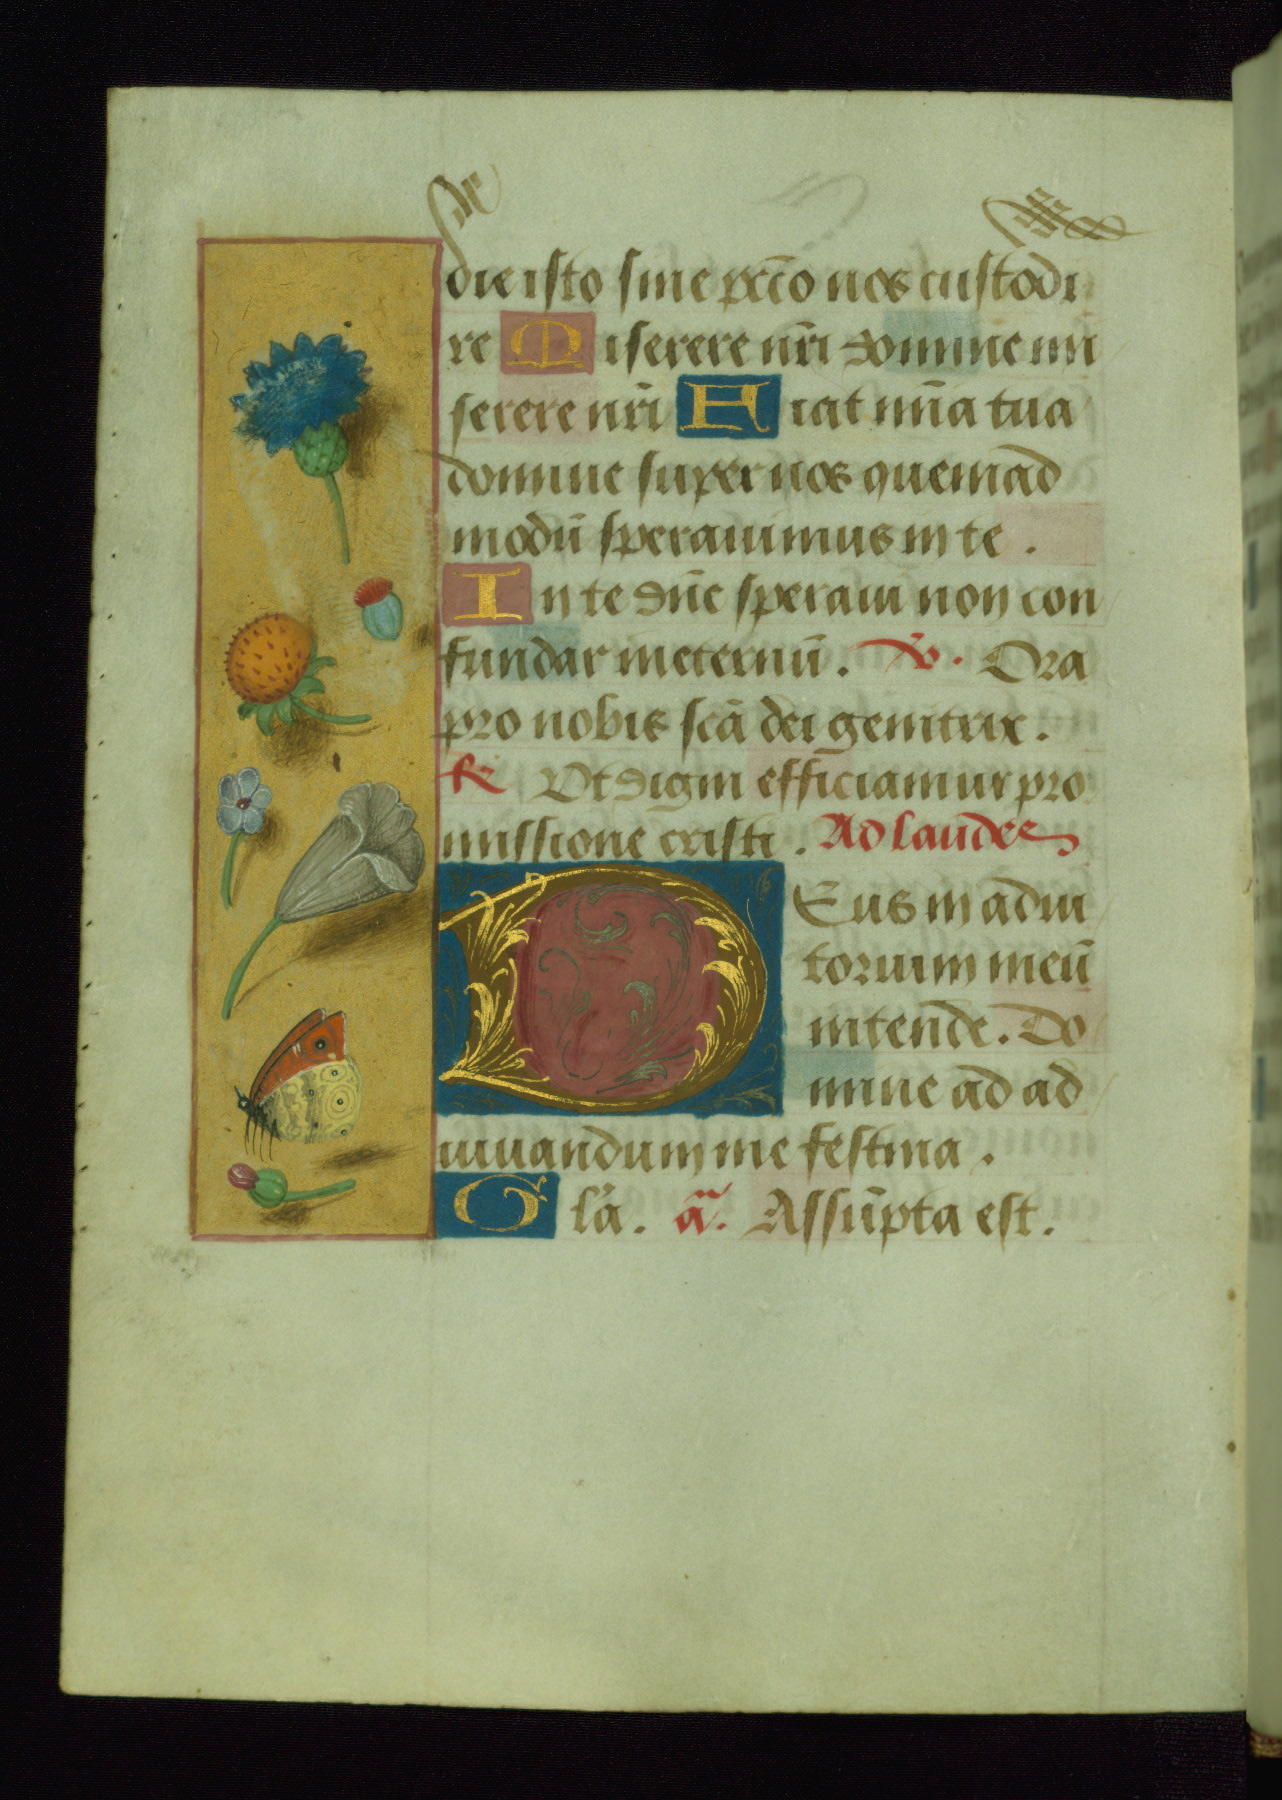 die isto sine pctō nos custodi
re Miserere nr̄i domine mi
serere nr̄i Fiat mīa tua
domine super nos quemad
modū sperauimus in te .
In te dn̄e speraui non con
fundar in eternū . V̄. Ora
pro nobis scā dei genitrix .
R Vt digni efficiamur pro
missione cristi . Ad laudes
Deus in adiu
torium meū
intende. Do
mine ad ad
iuuandum me festina .
Glā. ā. Assūpta est .